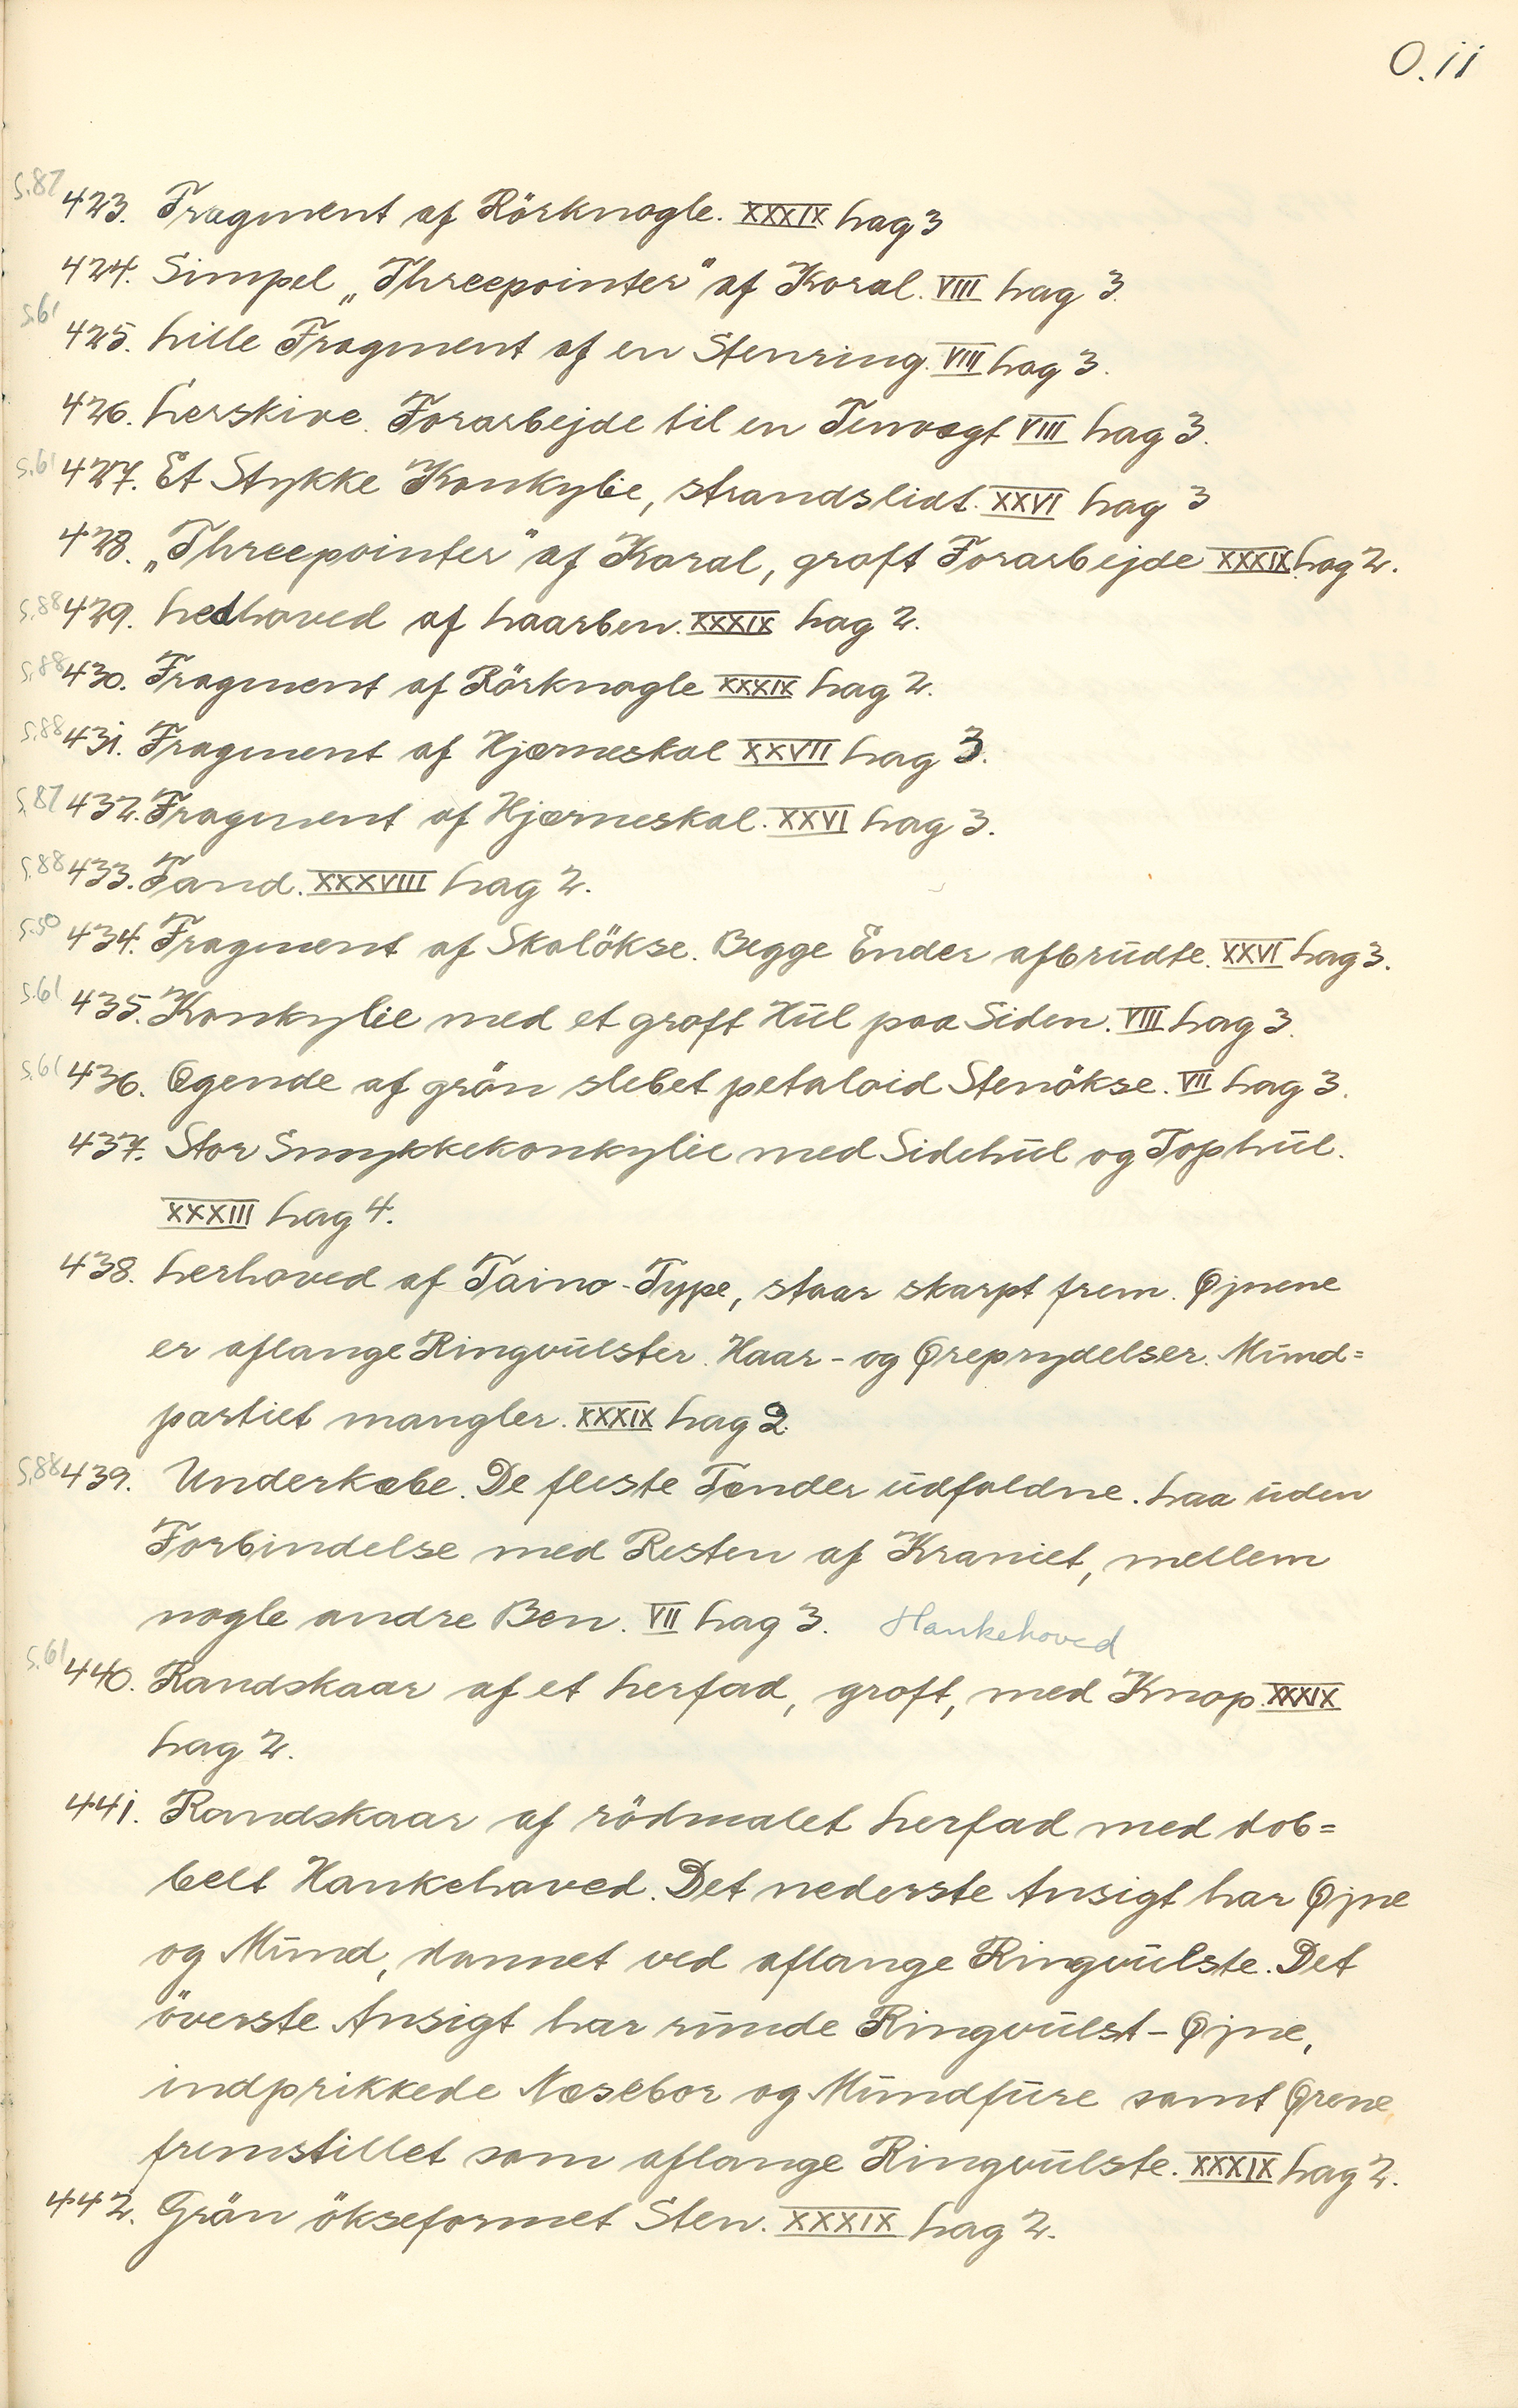 O.11
S.87 423. Fragment af Rörknogle. XXXIX Lag 3
424. Simpel „Threepointer" af Koral. VIII Lag 3.
S.61 425. Lille Fragment af en Stenring. VIII Lag 3.
426. Lerskive. Forarbejde til en Tenvægt VIII Lag 3.
S.61 427. Et Stykke Konkylie, strandslidt. XXVI Lag 3
428. „Threepointer" af Koral, groft Forarbejde XXXIX Lag 2.
S.88 429. Ledhoved af Laarben. XXXIX Lag 2.
S.88 430. Fragment af Rörknogle XXXIX Lag 2.
S.88 431. Fragment af Hjærneskal XXVII Lag 3.
S.87 432. Fragment af Hjærneskal. XXVI Lag 3.
S.88 433. Tand. XXXVIII Lag 2.
S.50 434. Fragment af Skalökse. Begge Ender afbrudte. XXVI Lag 3.
S.61 435. Konkylie med et groft Hul paa Siden. VIII Lag 3.
S.61 436. Ægende af grön slebet petaloid Stenökse. VII Lag 3.
437. Stor Smykkekonkylie med Sidehul og Tophul.
XXXIII Lag 4.
438. Lerhoved af Taino-Type, staar skarpt frem. Øjnene
er aflange Ringvulster. Haar- og Øreprydelser. Mund=
partiet mangler. XXXIX Lag 2.
S.88 439. Underkæbe. De fleste Tænder udfaldne. Laa uden
Forbindelse med Resten af Kraniet, mellem
nogle andre Ben. VII Lag 3. Hankehoved
S.61 440. Randskaar af et Lerfad, groft, med Knop. XXXIX
Lag 2.
441. Randskaar af rödmalet Lerfad med dob=
belt Hankehoved. Det nederste Ansigt har Øjne
og Mund, dannet ved aflange Ringvulste. Det
överste Ansigt har runde Ringvulst-Øjne,
indprikkede Næsebor og Mundfure samt Ørene
fremstillet som aflange Ringvulste. XXXIX Lag 2.
442. Grön ökseformet Sten. XXXIX Lag 2.